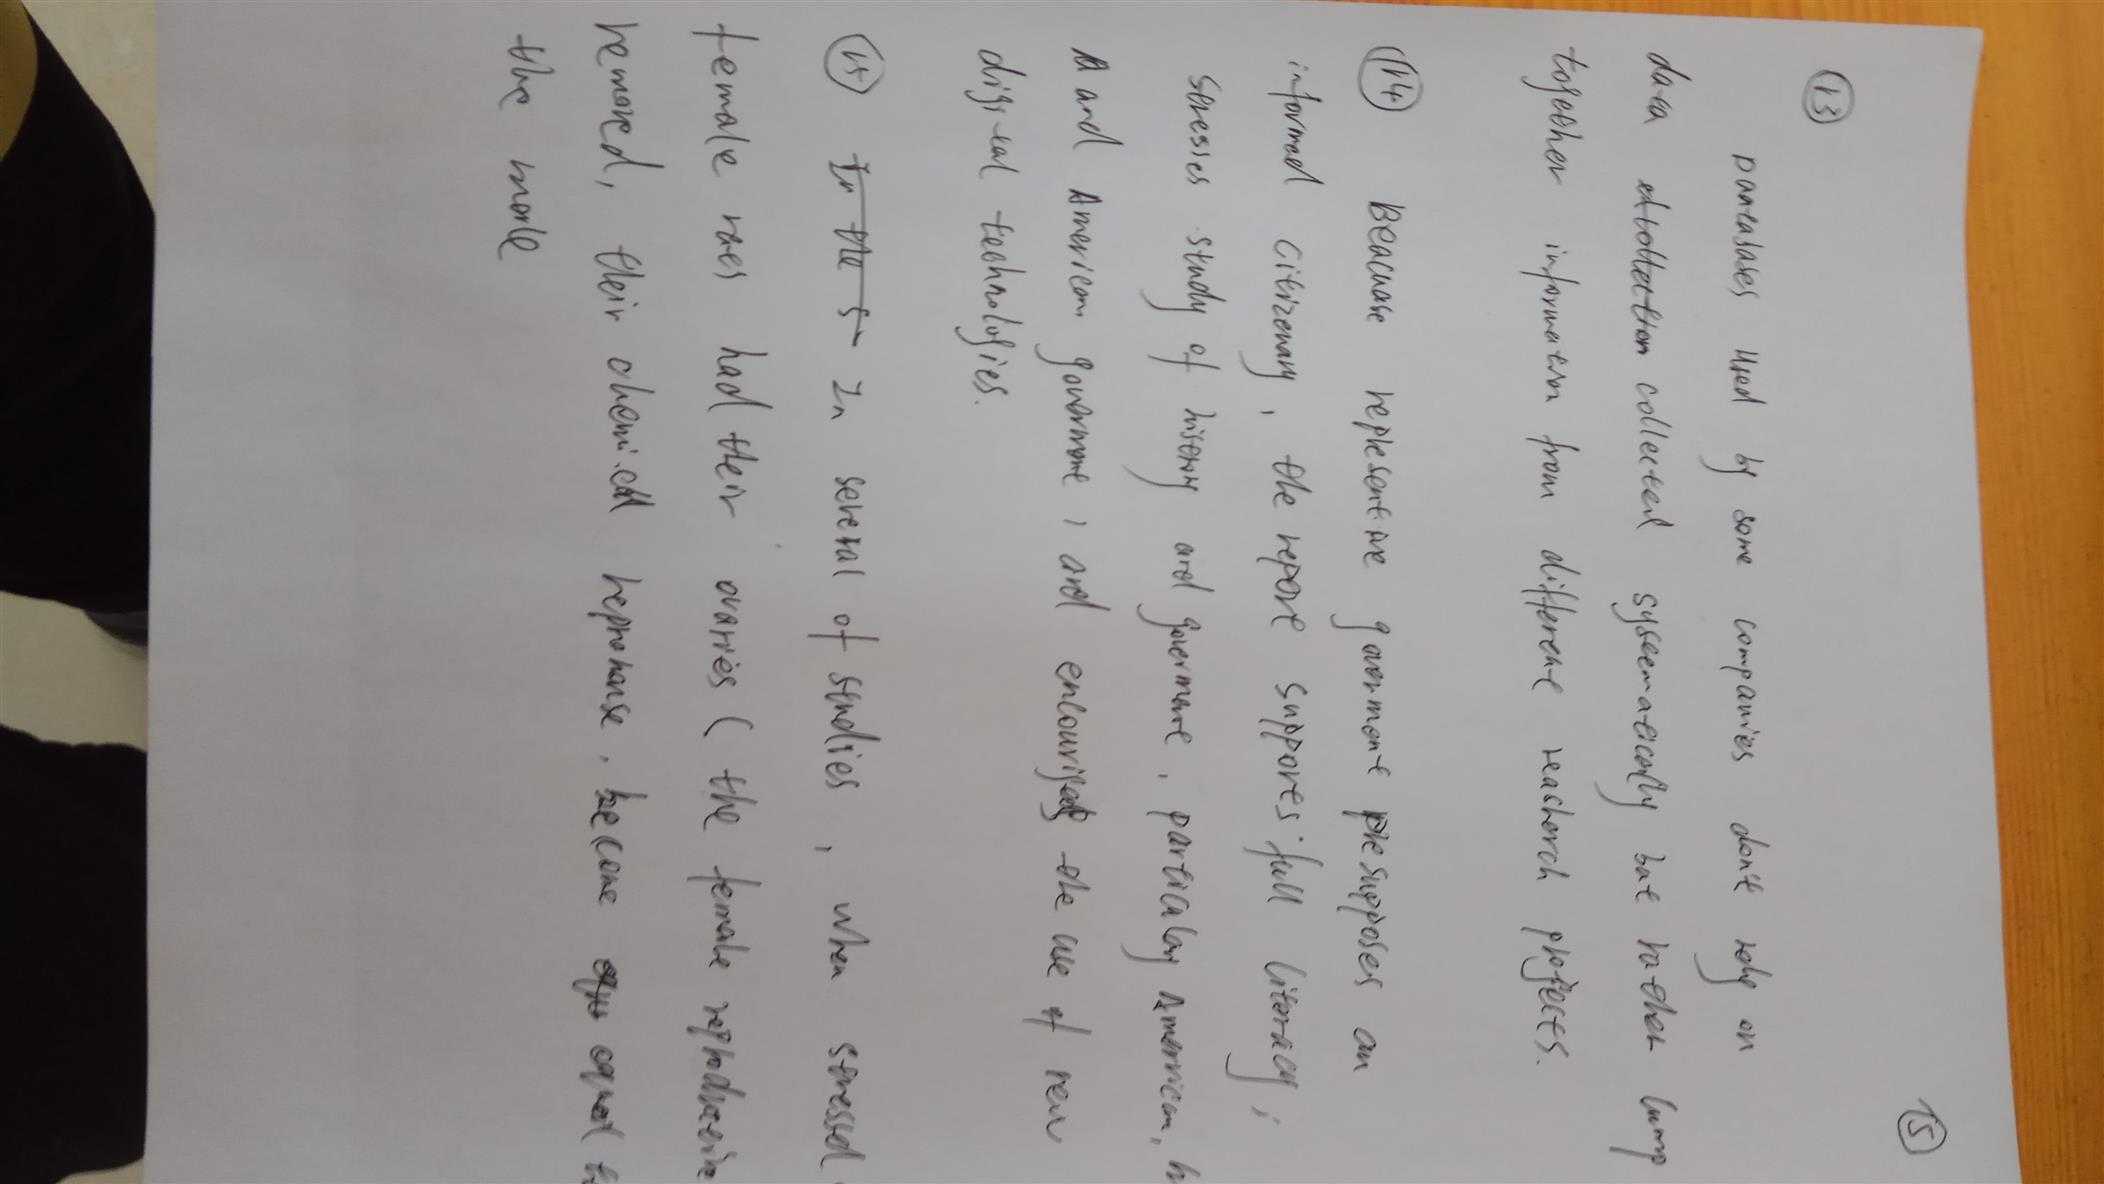 15
13
Dunuasaes used by some companies don't rely on
data collected systematically but rather lump
together information from different reasherch projects.
14 Beacuase representive goverment presupposes an
informed citizenary, the report supports full literacy;
stresses study of history and goverment, particulay American, h
and American goverment, and encouriges the use of new
digital technologies.
15 In the s In several of studies, when stressed
female rats had their ovaries ( the female reproductive
removed, their chemical reprohonse, become equal to
the male